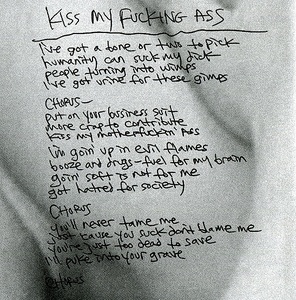 KISS MY FUCKING ASS
I've got a bone or two to pick
humanity can suck my dick
people turning into wimps
I've got urine for these gimps
CHORUS—
put on your business suit
more crap to contribute
kiss my motherfuckin' ass
I'm goin' up in evil flames
booze and drugs—fuel for my brain
goin' soft is not for me
got hatred for society
CHORUS
you'll never tame me
just 'cause you suck don't blame me
you're just too dead to save
I'll puke into your grave
CHORUS